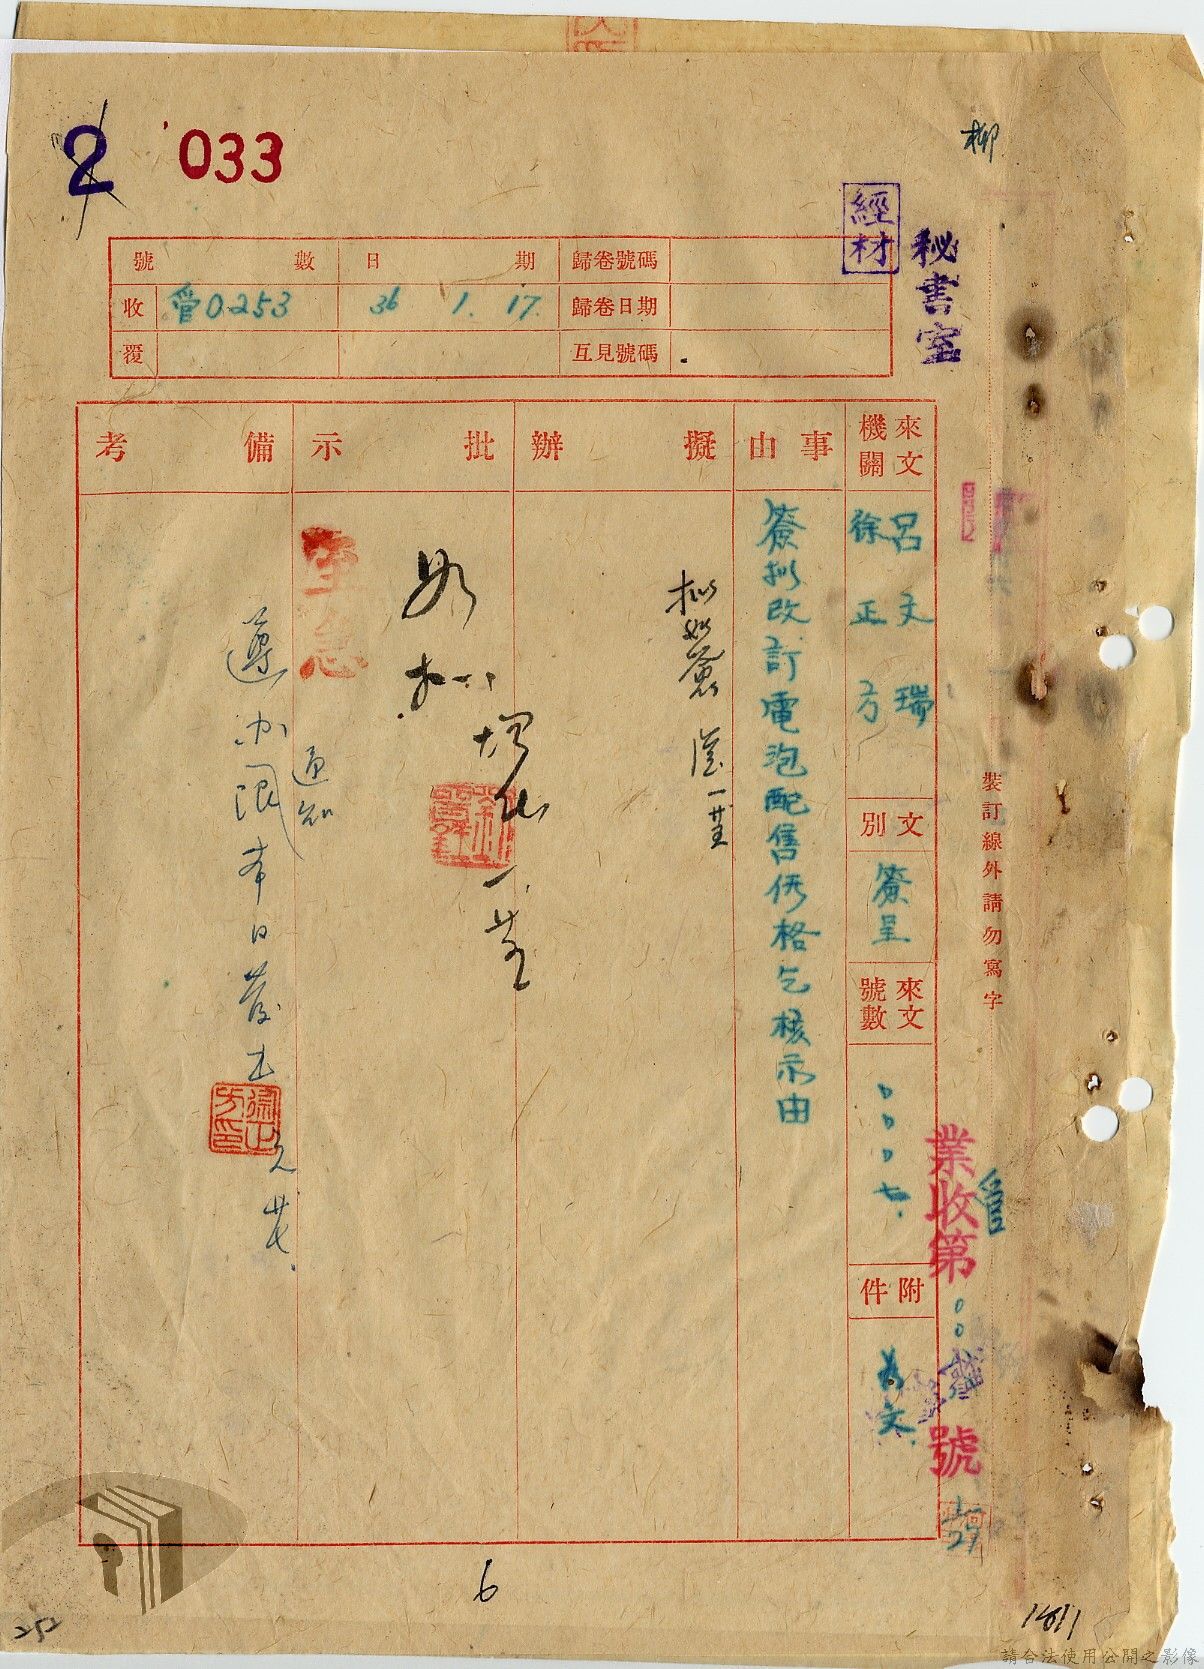 2 033
柳
經材
秘書室
號數 日期 歸卷號碼
收 管0253 36 1. 17. 歸卷日期
覆 互見號碼
來文機關
呂文瑞
徐正方
文別
簽呈
來文號數
000七.
附件
如文
事由
簽拟改訂電泡配售價格乞核示由
擬辦
拟如簽
批示
如拟
至急
備考
通知
遵办
本日發出
裝訂線外請勿寫字
業收第
管
號
6
252
1811
請合法使用公開之影像